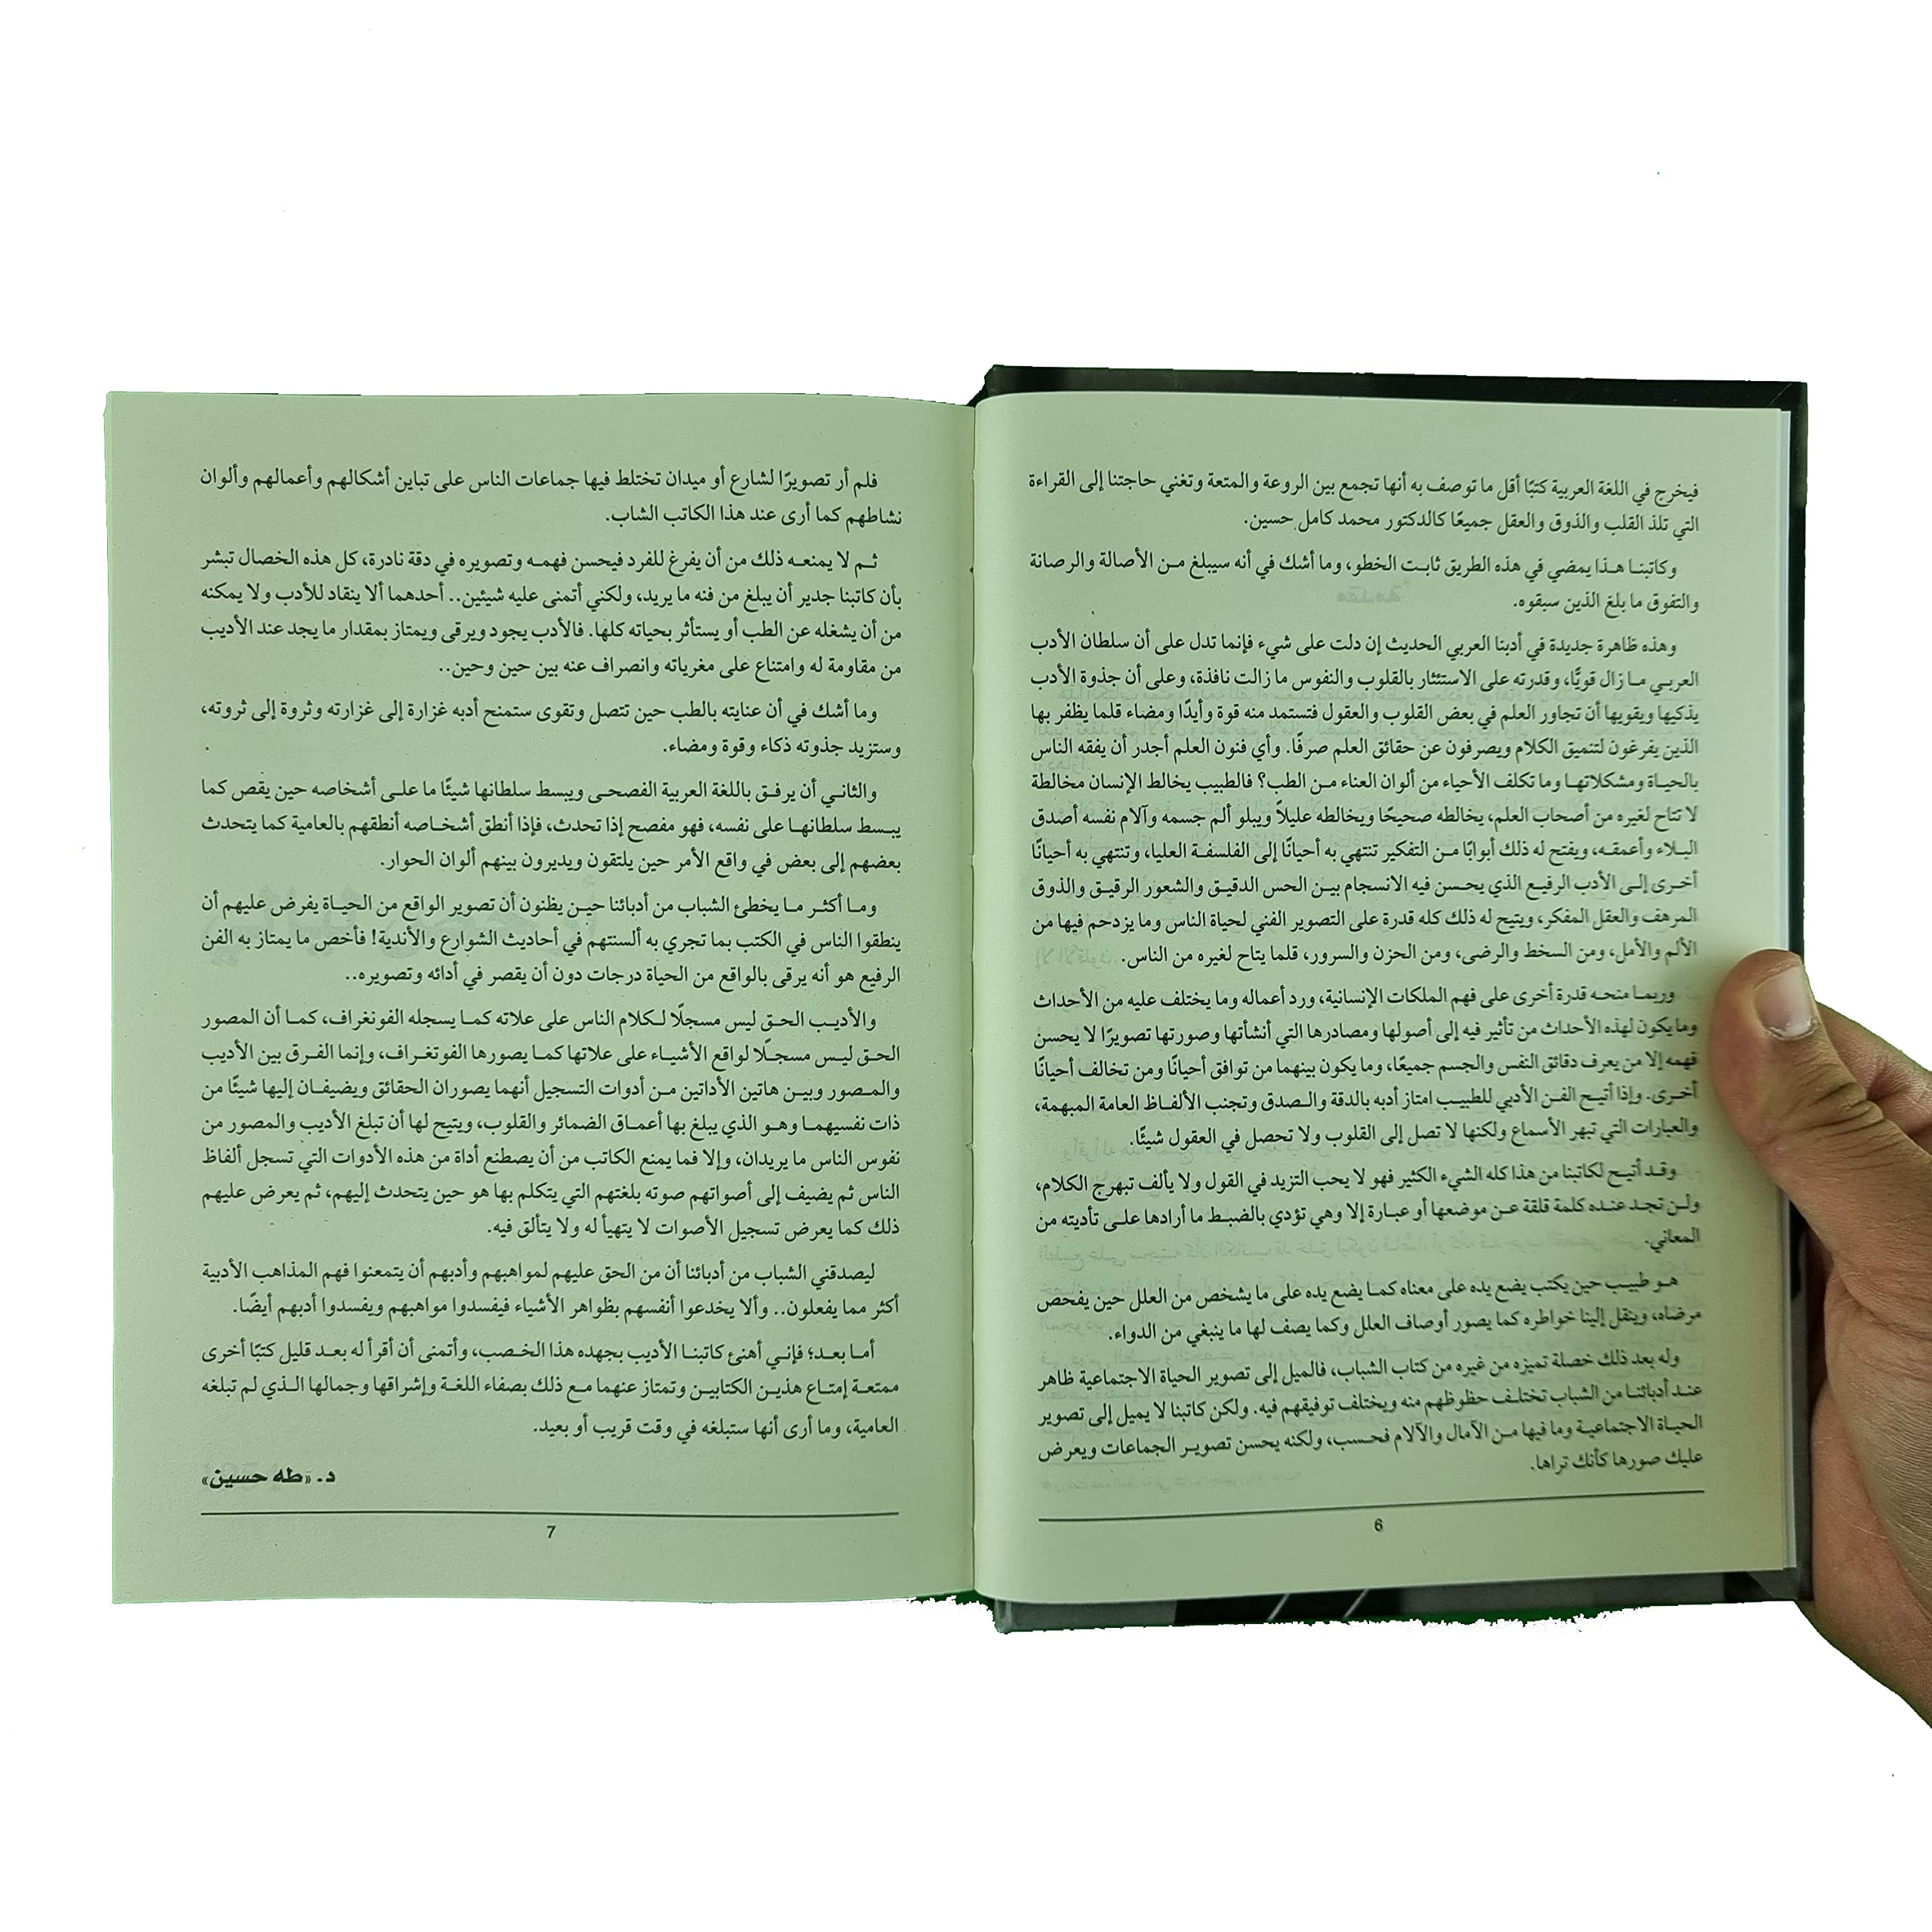 فيخرج في اللغة العربية كتبًا أقل ما توصف به أنها تجمع بين الروعة والمتعة وتغني حاجتنا إلى القراءة
التي تلذ القلب والذوق والعقل جميعًا كالدكتور محمد كامل حسين.
وكاتبنا هذا يمضي في هذه الطريق ثابت الخطو، وما أشك في أنه سيبلغ من الأصالة والرصانة
والتفوق ما بلغ الذين سبقوه.
وهذه ظاهرة جديدة في أدبنا العربي الحديث إن دلت على شيء فإنما تدل على أن سلطان الأدب
العربي ما زال قويًّا، وقدرته على الاستئثار بالقلوب والنفوس ما زالت نافذة، وعلى أن جذوة الأدب
يذكيها ويقويها أن تجاور العلم في بعض القلوب والعقول فتستمد منه قوة وأيدًا ومضاء قلما يظفر بها
الذين يفرغون لتنميق الكلام ويصرفون عن حقائق العلم صرفًا. وأي فنون العلم أجدر أن يفقه الناس
بالحياة ومشكلاتها وما تكلف الأحياء من ألوان العناء من الطب؟ فالطبيب يخالط الإنسان مخالطة
لا تتاح لغيره من أصحاب العلم، يخالطه صحيحًا ويخالطه عليلاً ويبلو ألم جسمه وآلام نفسه أصدق
البلاء وأعمقه، ويفتح له ذلك أبوابًا من التفكير تنتهي به أحيانًا إلى الفلسفة العليا، وتنتهي به أحيانًا
أخرى إلى الأدب الرفيع الذي يحسن فيه الانسجام بين الحس الدقيق والشعور الرقيق والذوق
المرهف والعقل المفكر، ويتيح له ذلك كله قدرة على التصوير الفني لحياة الناس وما يزدحم فيها من
الألم والأمل، ومن السخط والرضى، ومن الحزن والسرور، قلما يتاح لغيره من الناس.
وربما منحه قدرة أخرى على فهم الملكات الإنسانية، ورد أعماله وما يختلف عليه من الأحداث
وما يكون لهذه الأحداث من تأثير فيه إلى أصولها ومصادرها التي أنشأتها وصورتها تصويرًا لا يحسن
فهمه إلا من يعرف دقائق النفس والجسم جميعًا، وما يكون بينهما من توافق أحيانًا ومن تخالف أحيانًا
أخرى. وإذا أتيح الفن الأدبي للطبيب امتاز أدبه بالدقة والصدق وتجنب الألفاظ العامة المبهمة،
والعبارات التي تبهر الأسماع ولكنها لا تصل إلى القلوب ولا تحصل في العقول شيئًا.
وقد أتيح لكاتبنا من هذا كله الشيء الكثير فهو لا يحب التزيد في القول ولا يألف تبهرج الكلام،
ولن تجد عنده كلمة قلقة عن موضعها أو عبارة إلا وهي تؤدي بالضبط ما أرادها على تأديته من
المعاني.
هو طبيب حين يكتب يضع يده على معناه كما يضع يده على ما يشخص من العلل حين يفحص
مرضاه، وينقل إلينا خواطره كما يصور أوصاف العلل وكما يصف لها ما ينبغي من الدواء.
وله بعد ذلك خصلة تميزه من غيره من كتاب الشباب، فالميل إلى تصوير الحياة الاجتماعية ظاهر
عند أدبائنا من الشباب تختلف حظوظهم منه ويختلف توفيقهم فيه. ولكن كاتبنا لا يميل إلى تصوير
الحياة الاجتماعية وما فيها من الآمال والآلام فحسب، ولكنه يحسن تصوير الجماعات ويعرض
عليك صورها كأنك تراها.
6
فلم أر تصويرًا لشارع أو ميدان تختلط فيها جماعات الناس على تباين أشكالهم وأعمالهم وألوان
نشاطهم كما أرى عند هذا الكاتب الشاب.
ثم لا يمنعه ذلك من أن يفرغ للفرد فيحسن فهمه وتصويره في دقة نادرة، كل هذه الخصال تبشر
بأن كاتبنا جدير أن يبلغ من فنه ما يريد، ولكني أتمنى عليه شيئين.. أحدهما ألا ينقاد للأدب ولا يمكنه
من أن يشغله عن الطب أو يستأثر بحياته كلها. فالأدب يجود ويرقى ويمتاز بمقدار ما يجد عند الأديب
من مقاومة له وامتناع على مغرياته وانصراف عنه بين حين وحين..
وما أشك في أن عنايته بالطب حين تتصل وتقوى ستمنح أدبه غزارة إلى غزارته وثروة إلى ثروته،
وستزيد جذوته ذكاء وقوة ومضاء.
والثاني أن يرفق باللغة العربية الفصحى ويبسط سلطانها شيئًا ما على أشخاصه حين يقص كما
يبسط سلطانها على نفسه، فهو مفصح إذا تحدث، فإذا أنطق أشخاصه أنطقهم بالعامية كما يتحدث
بعضهم إلى بعض في واقع الأمر حين يلتقون ويديرون بينهم ألوان الحوار.
وما أكثر ما يخطئ الشباب من أدبائنا حين يظنون أن تصوير الواقع من الحياة يفرض عليهم أن
ينطقوا الناس في الكتب بما تجري به ألسنتهم في أحاديث الشوارع والأندية! فأخص ما يمتاز به الفن
الرفيع هو أنه يرقى بالواقع من الحياة درجات دون أن يقصر في أدائه وتصويره..
والأديب الحق ليس مسجلًا لكلام الناس على علاته كما يسجله الفونغراف، كما أن المصور
الحق ليس مسجلًا لواقع الأشياء على علاتها كما يصورها الفوتغراف، وإنما الفرق بين الأديب
والمصور وبين هاتين الأداتين من أدوات التسجيل أنهما يصوران الحقائق ويضيفان إليها شيئًا من
ذات نفسيهما وهو الذي يبلغ بها أعماق الضمائر والقلوب، ويتيح لها أن تبلغ الأديب والمصور من
نفوس الناس ما يريدان، وإلا فما يمنع الكاتب من أن يصطنع أداة من هذه الأدوات التي تسجل ألفاظ
الناس ثم يضيف إلى أصواتهم صوته بلغتهم التي يتكلم بها هو حين يتحدث إليهم، ثم يعرض عليهم
ذلك كما يعرض تسجيل الأصوات لا يتهيأ له ولا يتألق فيه.
ليصدقني الشباب من أدبائنا أن من الحق عليهم لمواهبهم وأدبهم أن يتمعنوا فهم المذاهب الأدبية
أكثر مما يفعلون.. وألا يخدعوا أنفسهم بظواهر الأشياء فيفسدوا مواهبهم ويفسدوا أدبهم أيضًا.
أما بعد؛ فإني أهنئ كاتبنا الأديب بجهده هذا الخصب، وأتمنى أن أقرأ له بعد قليل كتبًا أخرى
ممتعة إمتاع هذين الكتابين وتمتاز عنهما مع ذلك بصفاء اللغة وإشراقها وجمالها الذي لم تبلغه
العامية، وما أرى أنها ستبلغه في وقت قريب أو بعيد.
د. «طه حسين»
7